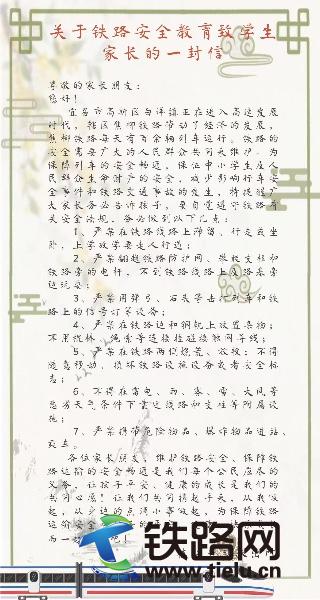 关于铁路安全教育致学生
家长的一封信
尊敬的家长朋友：
您好！
宜昌市高新区白洋镇正在进入高速发展
时代，辖区焦柳铁路带动了经济的发展，
焦柳铁路每天有百余辆列车运行。铁路的
安全需要广大的人民群众共同来维护。为
保障列车的安全畅通，保证中小学生及人
民群众生命财产的安全，减少影响行车安
全事件和铁路交通事故的发生，特提醒广
大家长务必告诉孩子，要自觉遵守铁路有
关安全法规，务必做到以下几点：
1、严禁在铁路线路上滞留、行走或坐
卧，上学放学要走人行道；
2、严禁翻越铁路防护网、攀爬支柱和
铁路旁的电杆，不到铁路线路上及路基旁
边玩耍；
3、严禁用弹弓、石头等击打列车和铁
路上的信号灯等设备；
4、严禁在铁路边和钢轨上放置杂物；
5、严禁在铁路两侧烧荒、放牧；不得
随意移动、损坏铁路设施设备或者安全标
志；
6、不得在雷电、雨、雾、雪、大风等
恶劣天气条件下靠近线路和支柱等附属设
施；
7、严禁携带危险物品、爆炸物品进站、
乘车。
各位家长朋友，维护铁路安全、保障铁
路运输的安全畅通是我们每个公民应尽的
义务，让孩子平安、健康的成长是我们的
共同心愿！让我们共同携起手来，从我做
起，从身边的点滴小事做起，为保障铁路
铁路网
www.tielu.cn